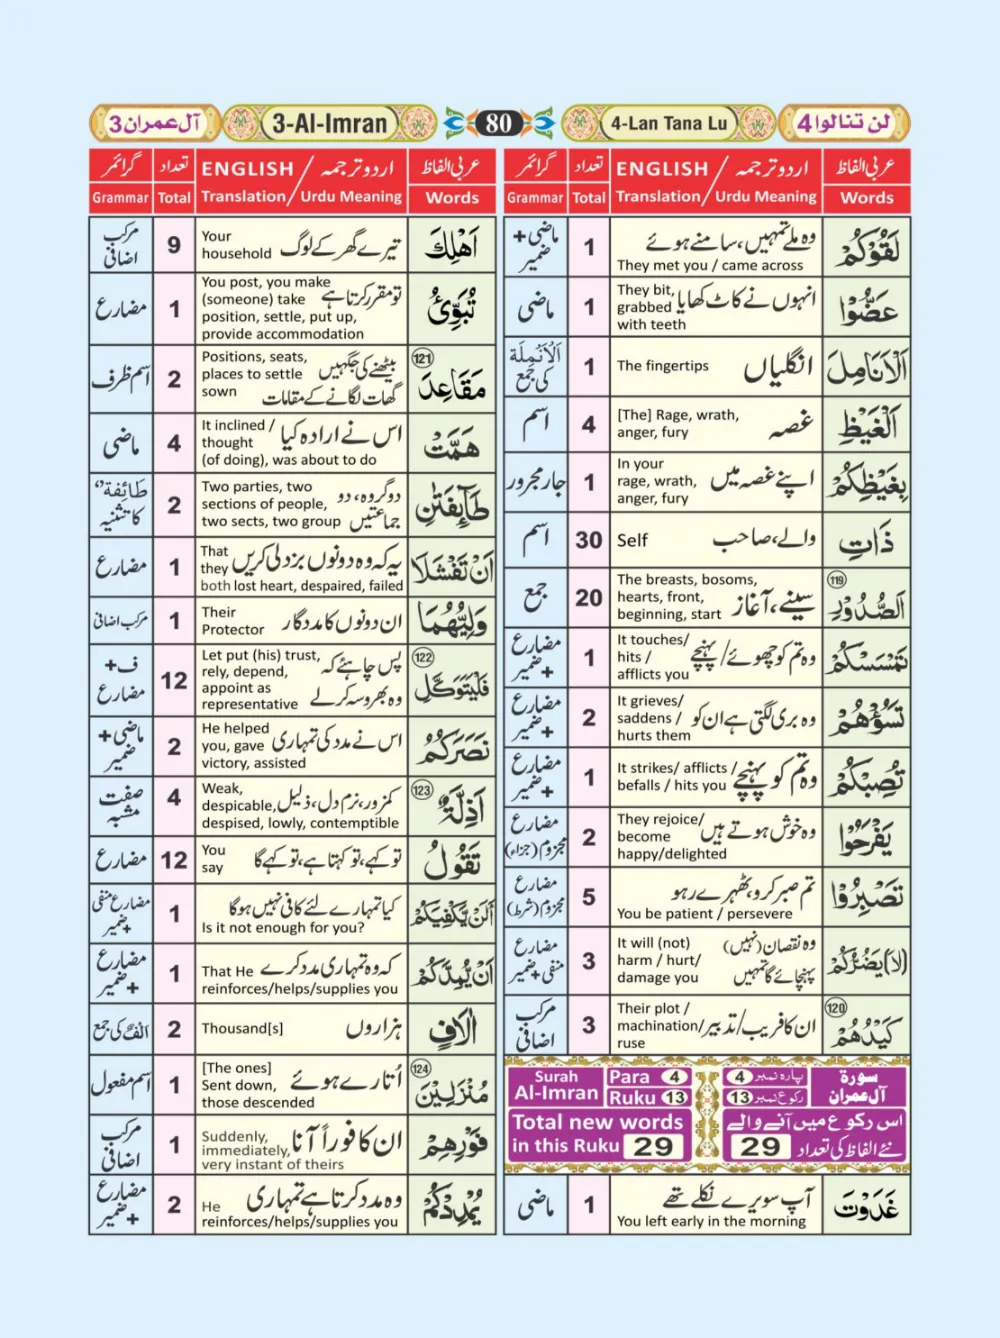 لن تنالوا 4
4-Lan Tana Lu
80
3-Al-Imran
آل عمران 3
عربی الفاظ
اردو ترجمہ / ENGLISH
تعداد
گرائمر
Words
Translation / Urdu Meaning
Total
Grammar
لَقُوْكُمْ
وہ ملے تمہیں، سامنے ہوئے
They met you / came across
1
ماضی +
ضمیر
عَضُّوْا
انہوں نے کاٹ کھایا
They bit,
grabbed
with teeth
1
ماضی
اَلْاَنَامِلَ
انگلیاں
The fingertips
1
اَلْاَنْمِلَة
کی جمع
اَلْغَيْظِ
غصہ
[The] Rage, wrath,
anger, fury
4
اسم
بِغَيْظِكُمْ
اپنے غصہ میں
In your
rage, wrath,
anger, fury
1
جار مجرور
ذَاتِ
والے، صاحب
Self
30
اسم
119
اَلصُّدُوْرِ
سینے، آغاز
The breasts, bosoms,
hearts, front,
beginning, start
20
جمع
تَمْسَسْكُمْ
وہ تم کو چھوئے / پہنچے
It touches/
hits /
afflicts you
1
مضارع
+ ضمیر
تَسُؤْهُمْ
وہ بری لگتی ہے ان کو
It grieves/
saddens /
hurts them
2
مضارع
+ ضمیر
تُصِبْكُمْ
وہ تم کو پہنچے
It strikes/ afflicts /
befalls / hits you
1
مضارع
+ ضمیر
يَفْرَحُوْا
وہ خوش ہوتے ہیں
They rejoice/
become
happy/delighted
2
مضارع
مجزوم (جزاء)
تَصْبِرُوْا
تم صبر کرو، ٹھہرے رہو
You be patient / persevere
5
مضارع
مجزوم (شرط)
(لَا) يَضُرُّكُمْ
وہ نقصان (نہیں)
پہنچائے گا تمہیں
It will (not)
harm / hurt/
damage you
3
مضارع
منفی + ضمیر
120
كَيْدُهُمْ
ان کا فریب / تدبیر
Their plot /
machination/
ruse
3
مرکب
اضافی
Surah
Al-Imran
Para 4
Ruku 13
پارہ نمبر 4
رکوع نمبر 13
سورة
آل عمران
Total new words
in this Ruku 29
اس رکوع میں آنے والے
نئے الفاظ کی تعداد 29
غَدَوْتَ
آپ سویرے نکلے تھے
You left early in the morning
1
ماضی
عربی الفاظ
اردو ترجمہ / ENGLISH
تعداد
گرائمر
Words
Translation / Urdu Meaning
Total
Grammar
اَهْلِكَ
تیرے گھر کے لوگ
Your
household
9
مرکب
اضافی
تُبَوِّئُ
تو مقرر کرتا ہے
You post, you make
(someone) take
position, settle, put up,
provide accommodation
1
مضارع
121
مَقَاعِدَ
بیٹھنے کی جگہیں
گھات لگانے کے مقامات
Positions, seats,
places to settle
sown
2
اسم ظرف
هَمَّتْ
اس نے ارادہ کیا
It inclined /
thought
(of doing), was about to do
4
ماضی
طَآئِفَتٰنِ
دو گروہ، دو
جماعتیں
Two parties, two
sections of people,
two sects, two group
2
طَائِفَة
کا تثنیہ
اَنْ تَفْشَلَا
یہ کہ وہ دونوں بزدلی کریں
That
they
both lost heart, despaired, failed
1
مضارع
وَلِيُّهُمَا
ان دونوں کا مددگار
Their
Protector
1
مرکب اضافی
122
فَلْيَتَوَكَّلِ
پس چاہئے کہ
وہ بھروسہ کرلے
Let put (his) trust,
rely, depend,
appoint as
representative
12
ف +
مضارع
نَصَرَكُمْ
اس نے مدد کی تمہاری
He helped
you, gave
victory, assisted
2
ماضی +
ضمیر
123
اَذِلَّةٌ
کمزور، نرم دل، ذلیل،
Weak,
despicable,
despised, lowly, contemptible
4
صفت
مشبہ
تَقُوْلُ
تو کہے، تو کہتا ہے، تو کہے گا
You
say
12
مضارع
اَلَنْ يَّكْفِيَكُمْ
کیا تمہارے لئے کافی نہیں ہوگا
Is it not enough for you?
1
مضارع منفی
+ ضمیر
اَنْ يُّمِدَّكُمْ
کہ وہ تمہاری مدد کرے
That He
reinforces/helps/supplies you
1
مضارع
+ ضمیر
اٰلَافٍ
ہزاروں
Thousand[s]
2
اَلْفٌ کی جمع
124
مُنْزَلِيْنَ
اُتارے ہوئے
[The ones]
Sent down,
those descended
1
اسم مفعول
فَوْرِهِمْ
ان کا فوراً آنا
Suddenly,
immediately,
very instant of theirs
1
مرکب
اضافی
يُمْدِدْكُمْ
وہ مدد کرتا ہے تمہاری
He
reinforces/helps/supplies you
2
مضارع
+ ضمیر